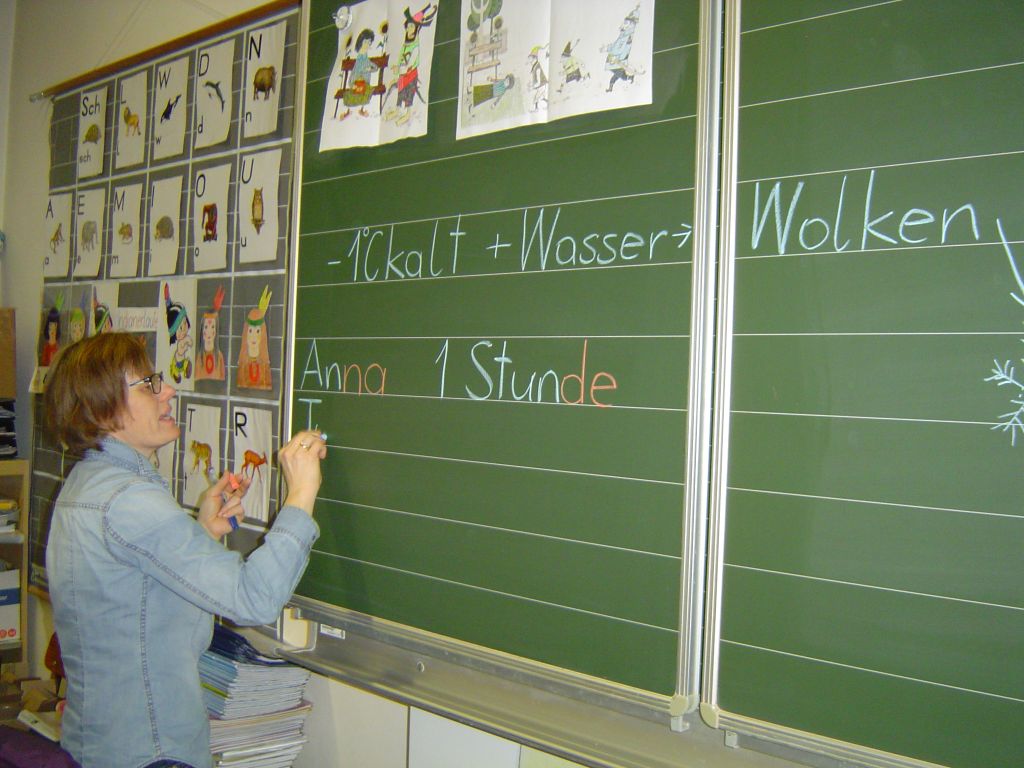 N n
D d
W w
L
Sch sch
U u
O o
I i
M m
E e
A a
Indianerlaute
T
R
-1°C kalt + Wasser → Wolken
Anna 1 Stunde
T